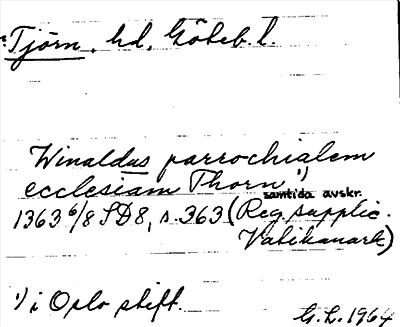 Tjörn, hd, Göteb. l.
Winaldus parrochialem
ecclesiam Thorn 1)
samtida avskr.
1363 6/8 SD8, s. 363 (Reg. supplic.
Vatikanark)
1) i Oslo stift.
G.L. 1964